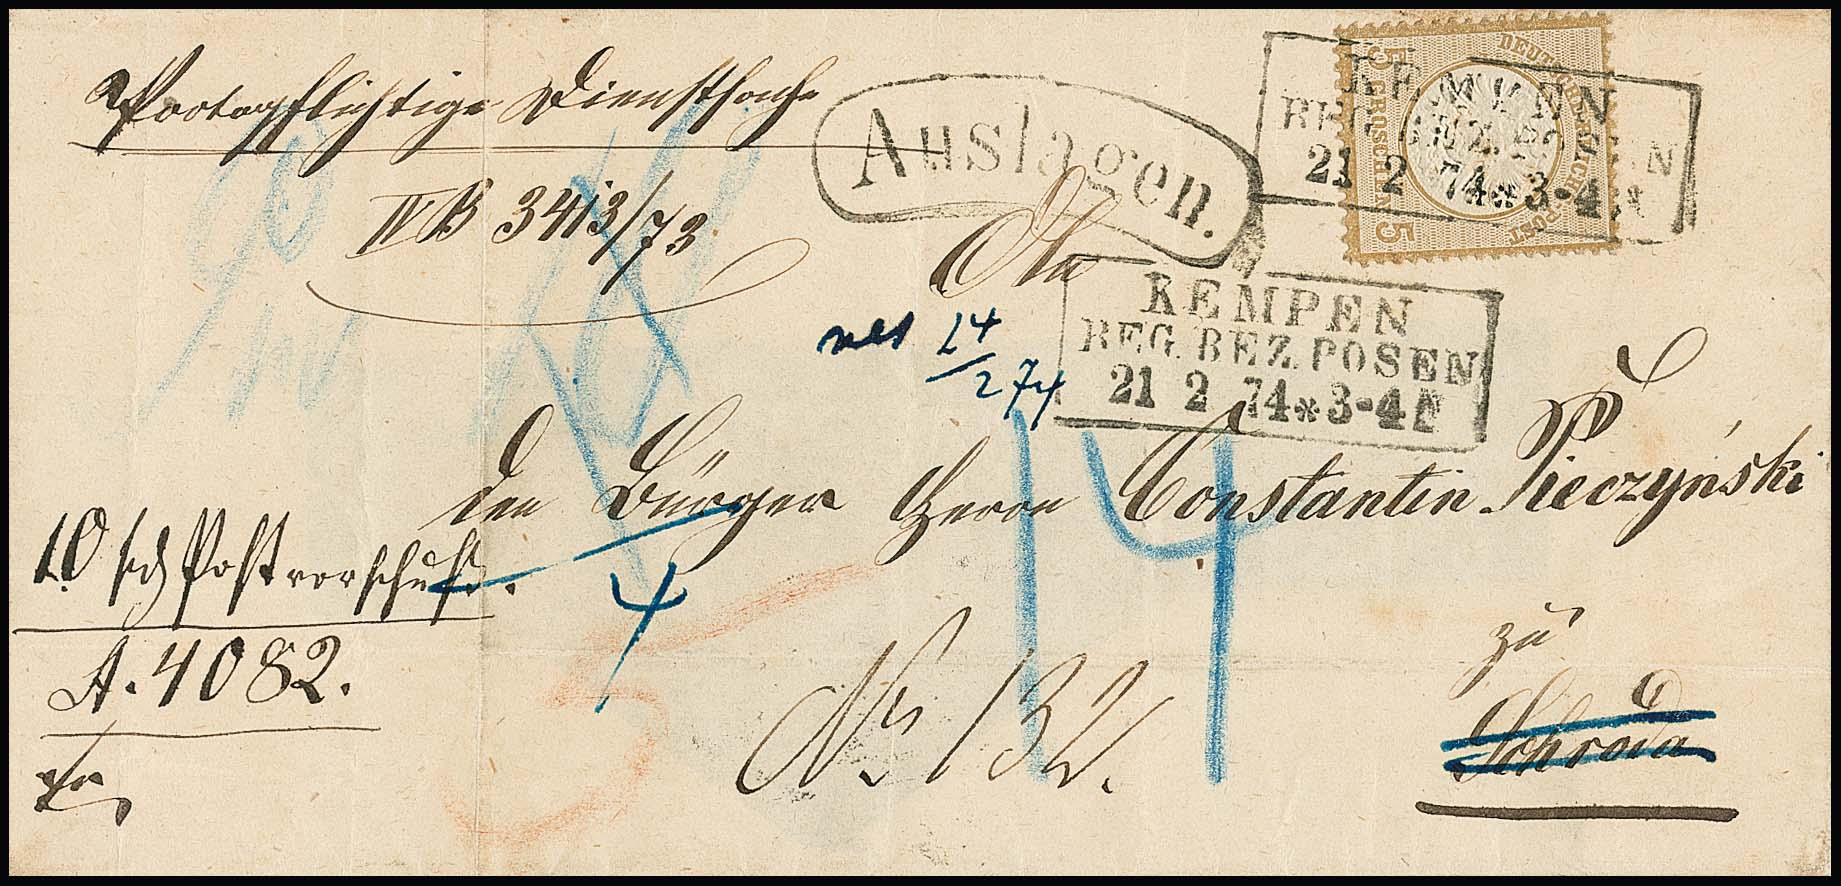 Portopflichtige Dienstsache
IV B 3413/73
Auslagen.
KEMPEN
REG. BEZ. POSEN
21 2 74 * 3-4 N
DEUTSCHE REICHS-POST
5 GROSCHEN 5
An
KEMPEN
REG. BEZ. POSEN
21 2 74 * 3-4 N
24/2 74
den Bürger Herrn Constantin Pieczyński
10 sg Postvorschuß.
A. 4082.
4
14
No 132.
zu
Schroda